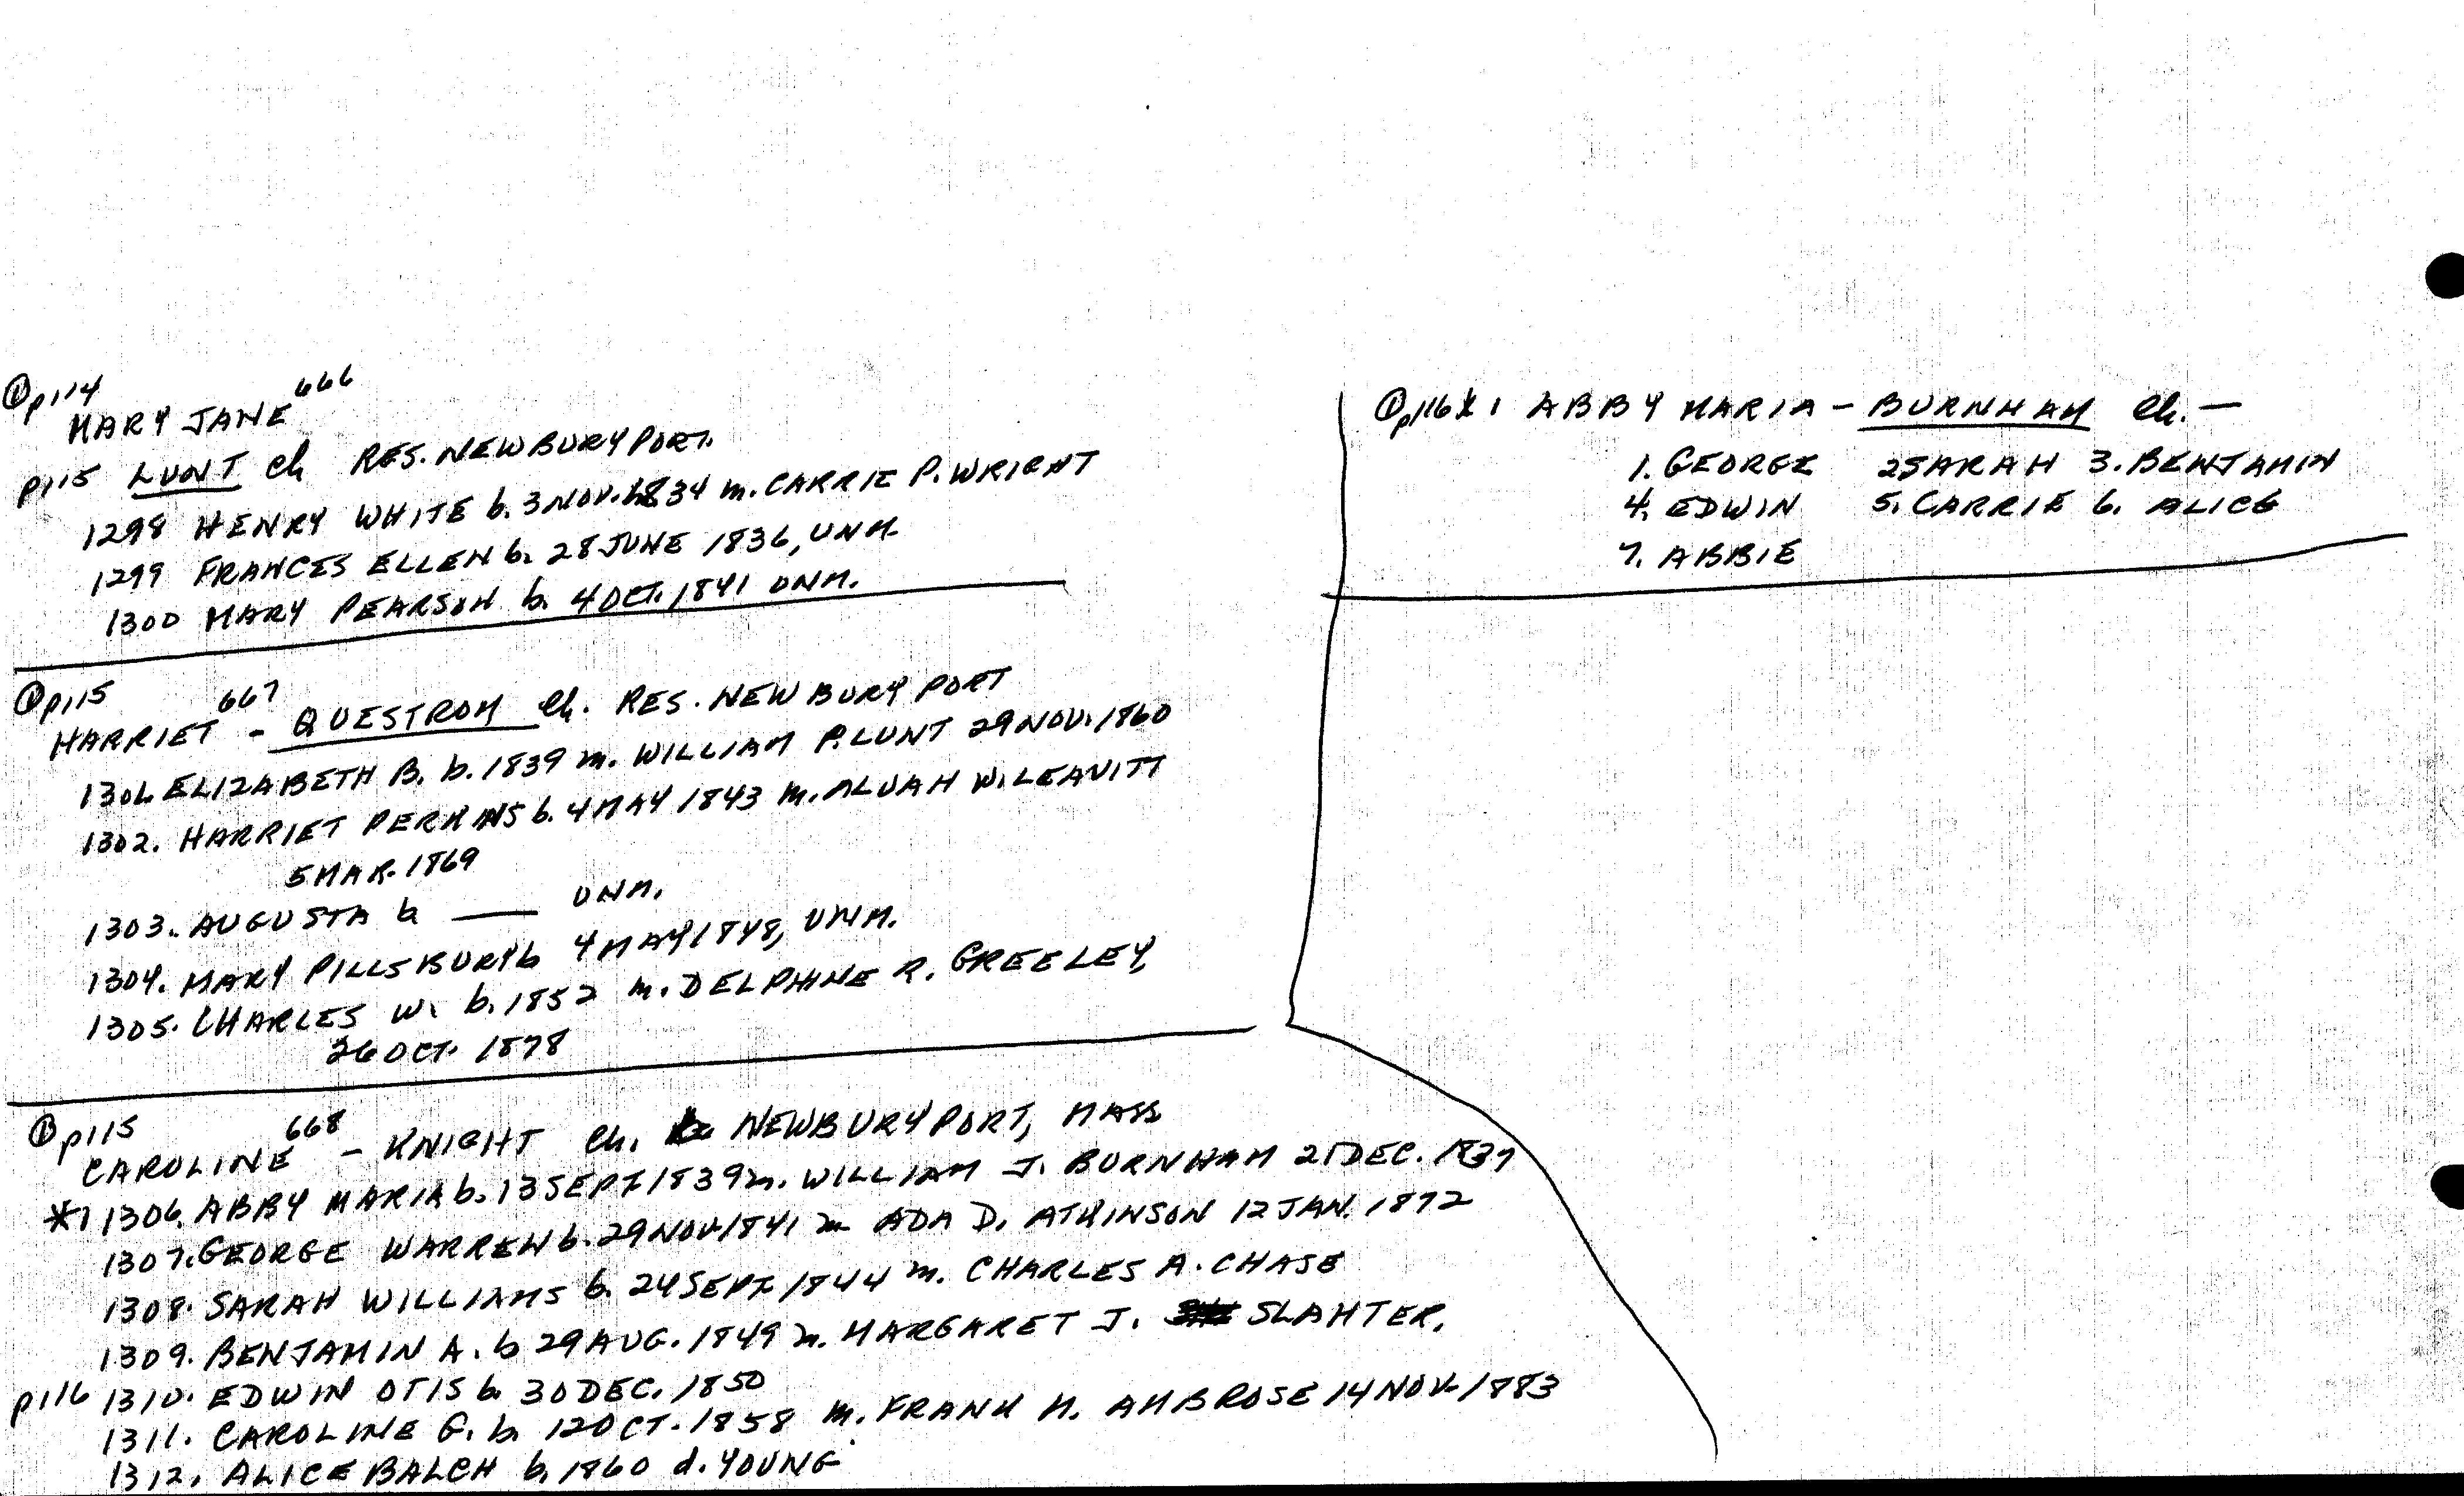 ① p114
MARY JANE 666
p115 LUNT ch RES. NEWBURYPORT.
1298 HENRY WHITE b. 3 NOV. 1834 m. CARRIE P. WRIGHT
1299 FRANCES ELLEN b. 28 JUNE 1836, UNM.
1300 MARY PEARSON b. 4 OCT. 1841 UNM.
① p115
HARRIET 667 - QUESTROM Ch. RES. NEWBURYPORT
1301. ELIZABETH B. b. 1839 m. WILLIAM P. LUNT 29 NOV. 1860
1302. HARRIET PERKINS b. 4 MAY 1843 m. ALVAH W. LEAVITT
5 MAR. 1869
1303. AUGUSTA b —— UNM.
1304. MARY PILLSBURY b 4 MAY 1848, UNM.
1305. CHARLES W. b. 1852 m. DELPHINE R. GREELEY,
26 OCT. 1878
① p115
CAROLINE 668 - KNIGHT Ch. NEWBURYPORT, MASS
*1 1306. ABBY MARIA b. 13 SEPT. 1839 m. WILLIAM J. BURNHAM DEC.
1307. GEORGE WARREN b. 29 NOV. 1841 m ADA D. ATKINSON 12 JAN. 1872
1308. SARAH WILLIAMS b. 24 SEPT. 1844 m. CHARLES A. CHASE
1309. BENJAMIN A. b 29 AUG. 1849 m. MARGARET J. SLAHTER.
p116 1310. EDWIN OTIS b. 30 DEC. 1850
1311. CAROLINE G. b. 12 OCT. 1858 m. FRANK M. AMBROSE 14 NOV. 1883
1312. ALICE BALCH b. 1860 d. YOUNG
① p116 * 1 ABBY MARIA - BURNHAM Ch. —
1. GEORGE 2 SARAH 3. BENJAMIN
4. EDWIN 5. CARRIE 6. ALICE
7. ABBIE